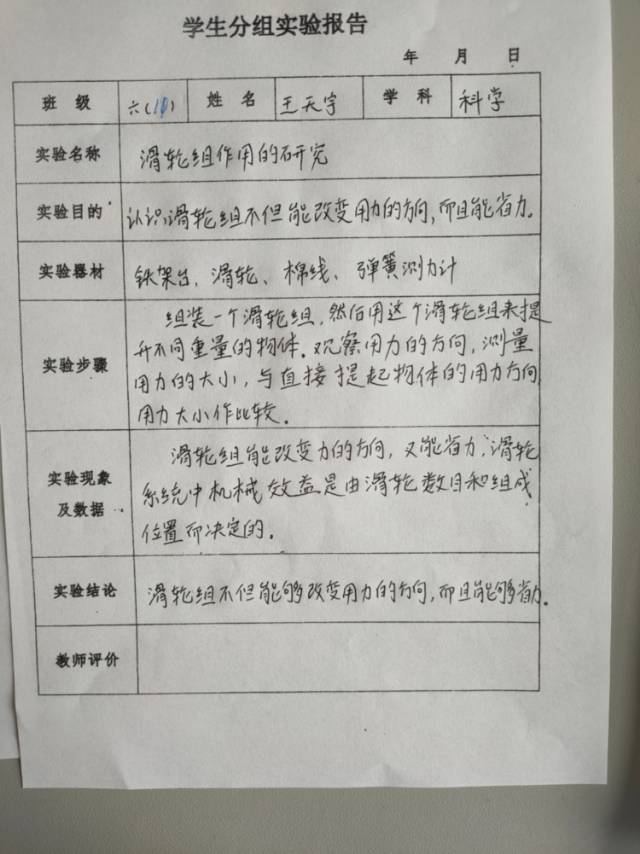 学生分组实验报告
年 月 日
班 级 六( ) 姓 名 王天宇 学 科 科学
实验名称 滑轮组作用的研究
实验目的 认识滑轮组不但能改变用力的方向,而且能省力。
实验器材 铁架台、滑轮、棉线、弹簧测力计
组装一个滑轮组,然后用这个滑轮组来提
升不同重量的物体。观察用力的方向,测量
实验步骤 用力的大小,与直接提起物体的用力方向
用力大小作比较。
滑轮组能改变力的方向,又能省力,滑轮
实验现象 系统中机械效益是由滑轮数目和组成
及数据 位置而决定的。
实验结论 滑轮组不但能够改变用力的方向,而且能够省力。
教师评价